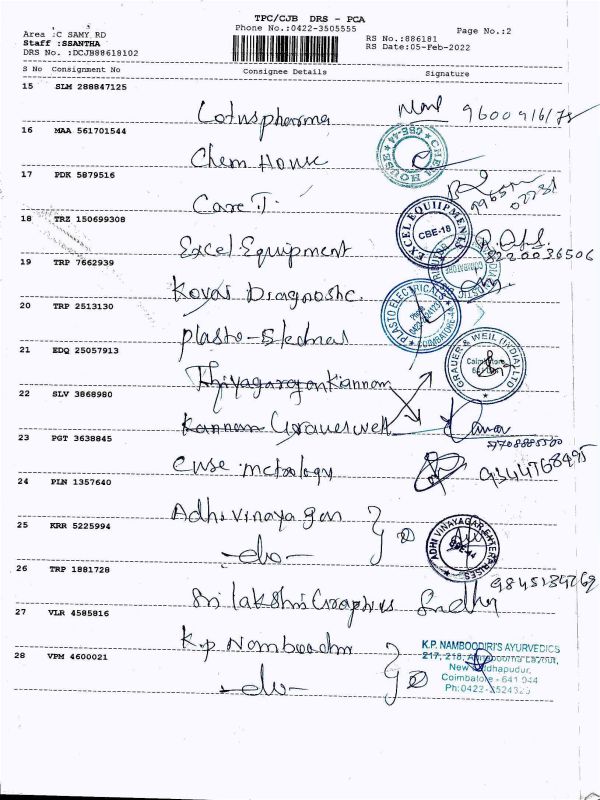 TPC/CJB DRS - PCA
Phone No.:0422-3505555
Page No.:2
Area :C SAMY RD
Staff :SSANTHA
DRS No. :DCJB88618102
RS No.:886181
RS Date:05-Feb-2022
S No Consignment No Consignee Details Signature
15 SLM 288847125
Lotus pharma
16 MAA 561701544
Chem House
CHEM HOUSE CBE-44
17 PDK 5879516
Care T.
18 TRZ 150699308
Excel Equipment
EXCEL EQUIPMENTS CBE-18
8220036506
19 TRP 7662939
Kovai Diagnostic
20 TRP 2513130
PLASTO ELECTRICALS
21 EDQ 25057913
GRAUER & WEIL (INDIA) LTD
Coimbatore
22 SLV 3868980
Kannan Grauerwell
7708885500
23 PGT 3638845
metrology
9344768495
24 PLN 1357640
Adhi vinayagar
25 KRR 5225994
-do-
ADHI VINAYAGAR ENTERPRISES CBE-44
26 TRP 1881728
Sri lakshmi Graphics
27 VLR 4585816
K.p Namboodri
K.P. NAMBOODIRI'S AYURVEDICS
217, 218,
New Siddhapudur,
Coimbatore - 641 044
28 VPM 4600021
-do-